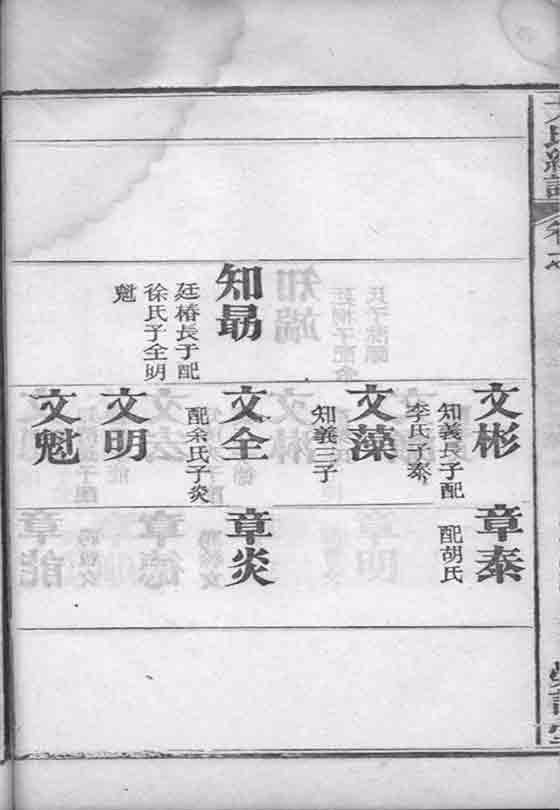 知勗
廷椿長子配
徐氏子全明
魁
文彬
知義長子配
李氏子泰
文藻
知義三子
文全
配余氏子炎
文明
文魁
章泰
配胡氏
章炎